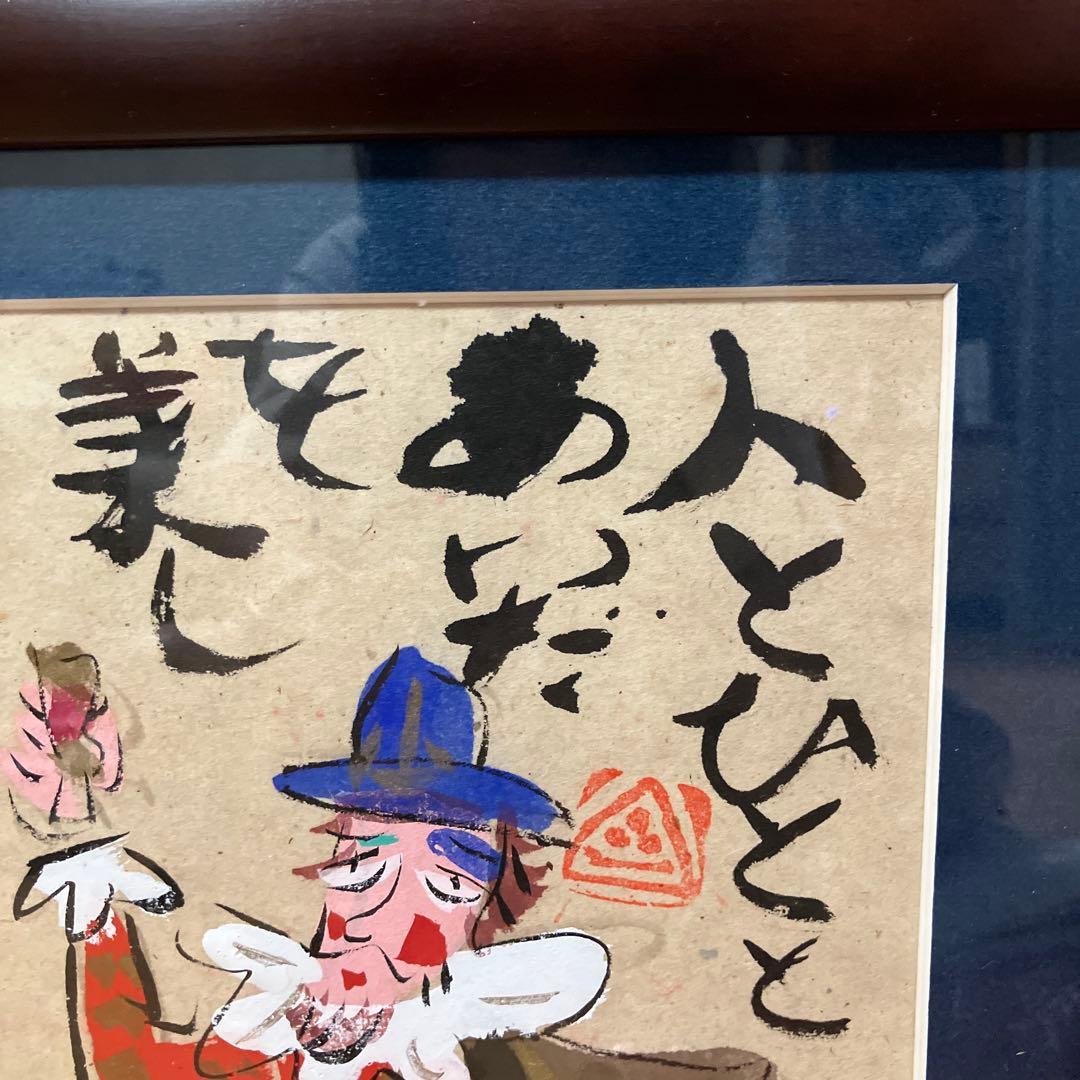 人とひとと
あいだ
を
美し